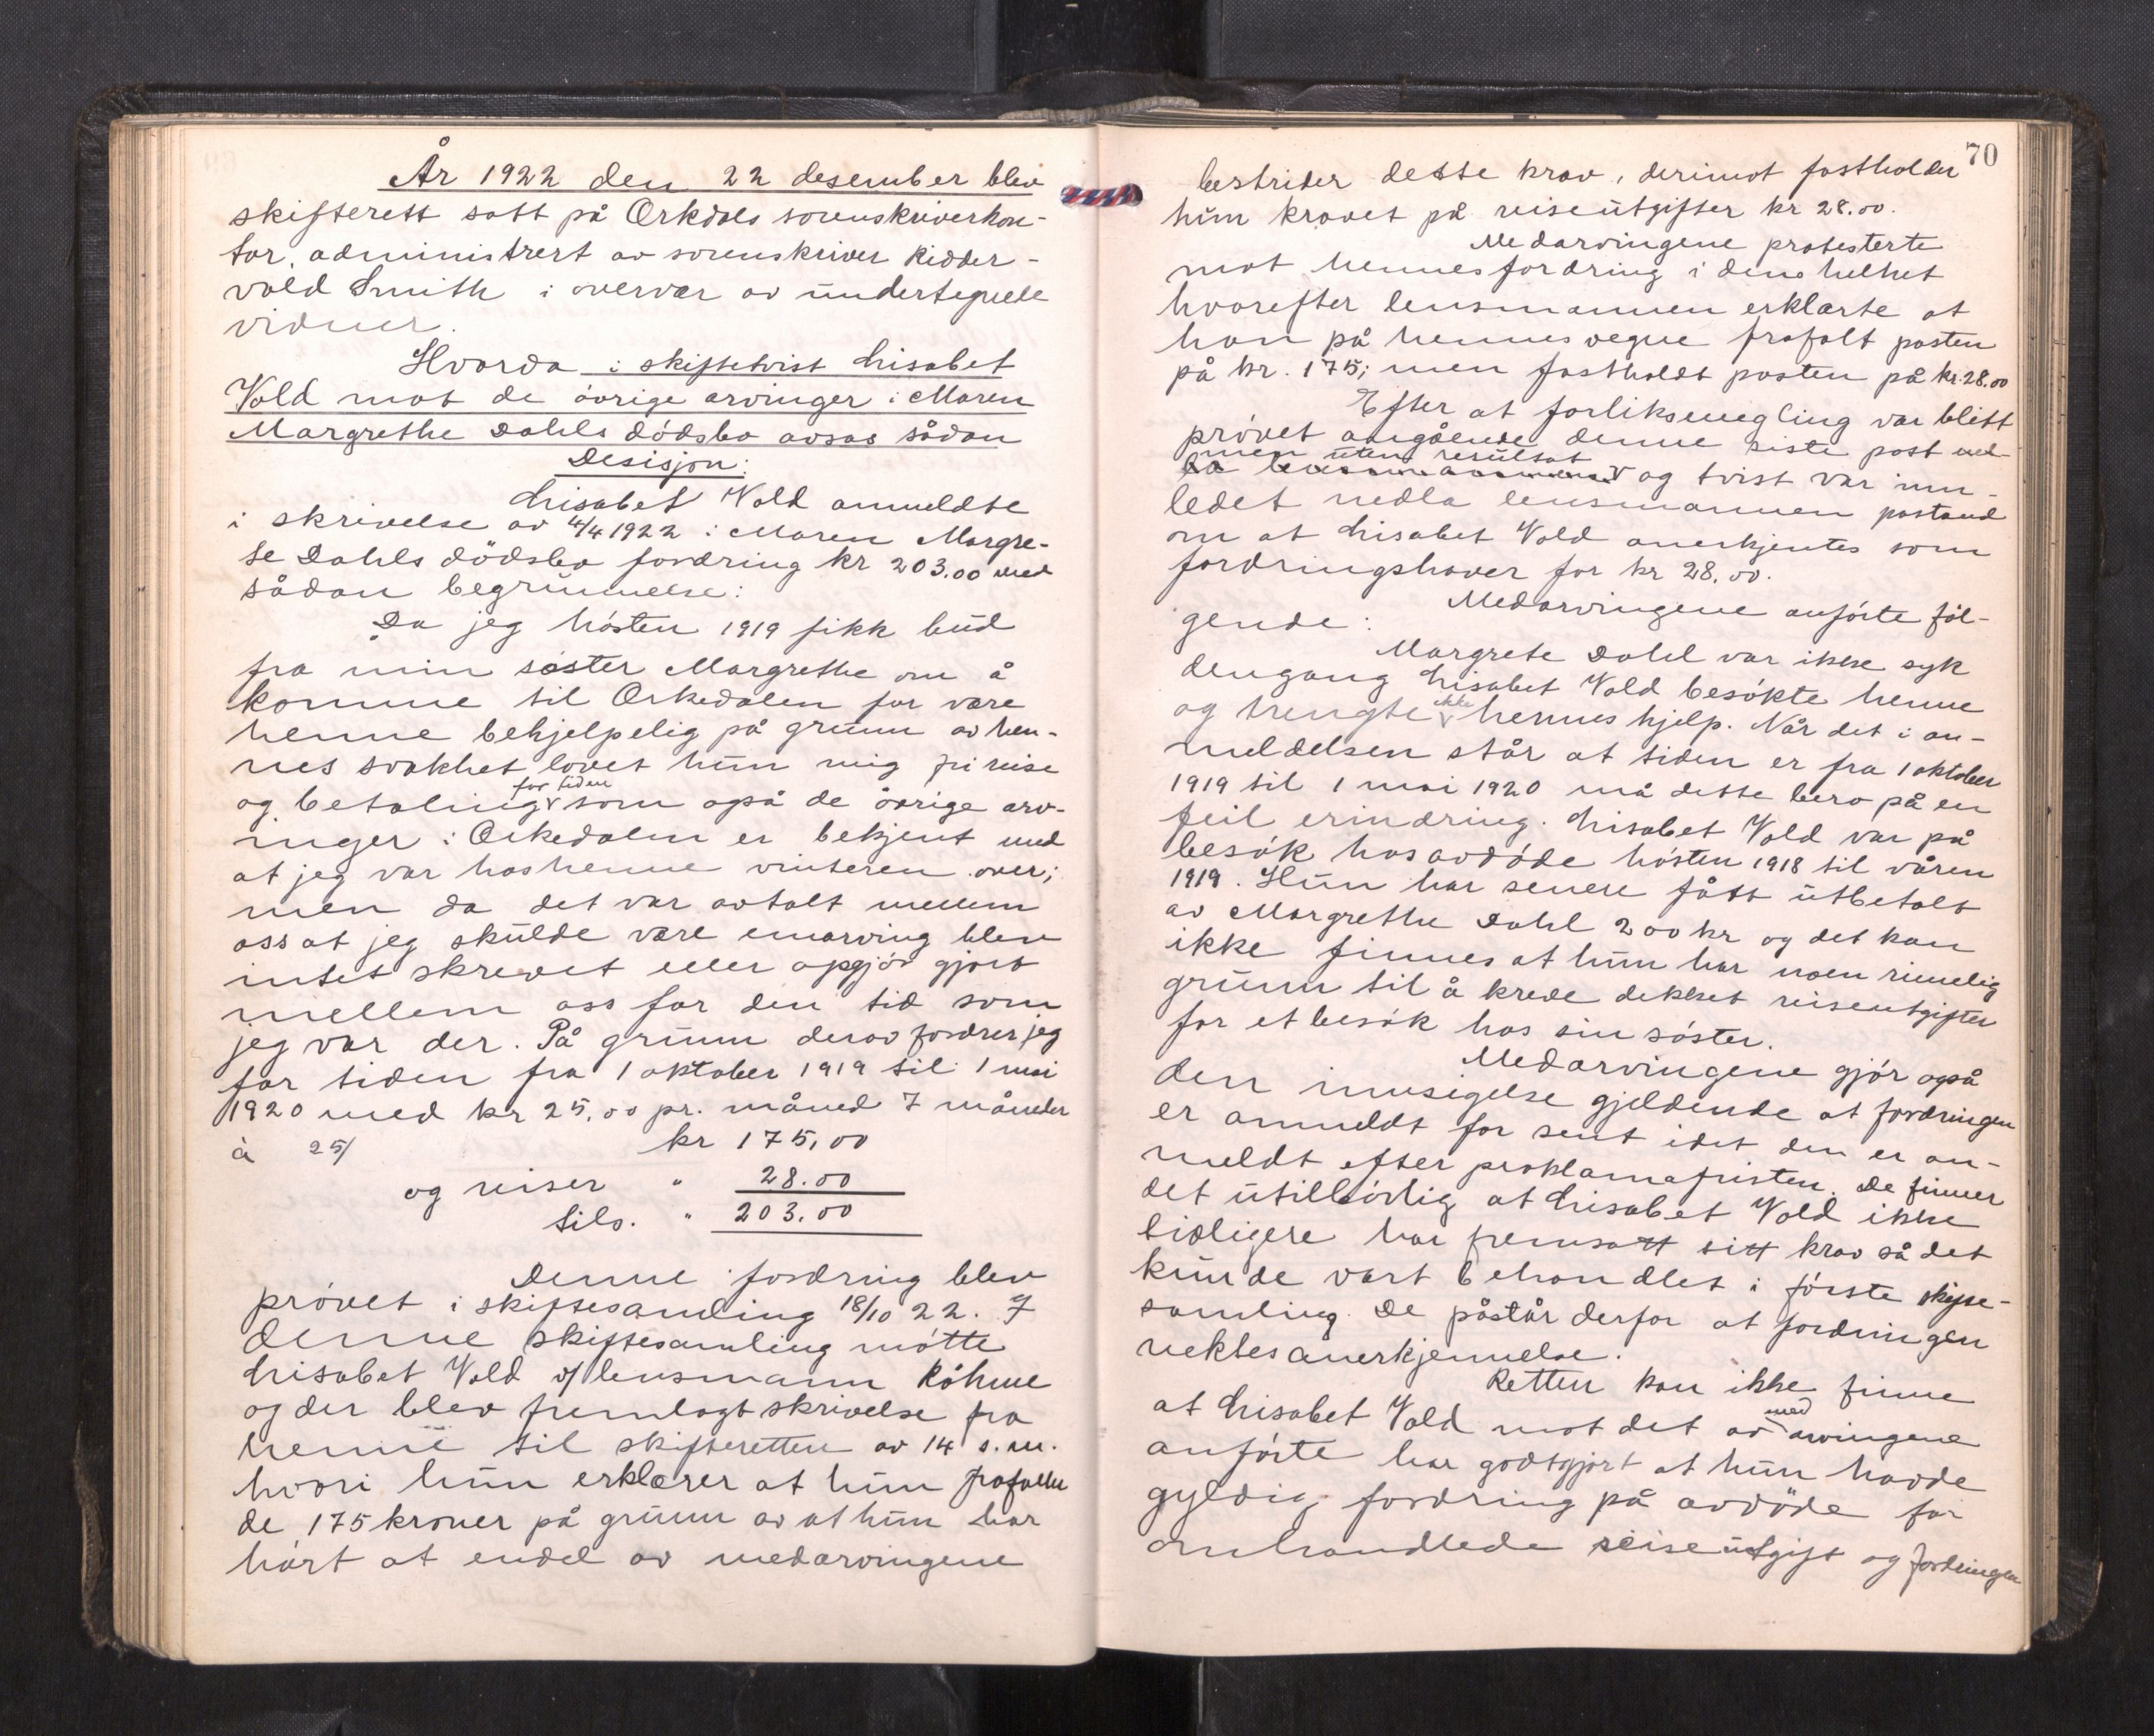 År 1922 den 22 desember blev
skifterett satt på Orkdals sorenskriverkon-
tor, administrert av sorenskriver Ridder-
vold Smith i overvær av undertegnede
vidner.
Hvorda i skiftetvist Lisabet
Vold mot de øvrige arvinger i Maren
Margrethe Dahls dödsbo avsas sådan
Desisjon:
Lisabet Vold anmeldte
i skrivelse av 4/4 1922 i Maren Margre-
te Dahls dödsbo fordring kr 203.00 med
sådan begrunnelse:
Da jeg hösten 1919 fikk bud
fra min söster Margrethe om å
komme til Orkedalen for være
henne behjelpelig på grunn av hen-
nes svakhet lovet hun mig fri reise
for tiden
og betaling v som også de övrige arv-
inger i Orkedalen er bekjent med
at jeg var hos henne vinteren over;
men da det var avtalt mellem
oss at jeg skulde være enarving blev
intet skrevet eller opgjör gjort
mellem oss for den tid som
jeg var der. På grunn derav fordrer jeg
for tiden fra 1 oktober 1919 til 1 mai
1920 med kr 25.00 pr. måned 7 måneder
à 25/ kr 175,00
og reiser " 28.00
tils. " 203.00
Denne fordring blev
prövet i skiftesamling 18/10 22. I
denne skiftesamling mötte
Lisabet Vold v/ lensmann Röhme
og der blev fremlagt skrivelse fra
henne til skifteretten av 14 s.m.
hvori hun erklærer at hun frafaller
de 175 kroner på grunn av at hun har
hört at endel av medarvingene
70
bestrider dette krav, derimot fastholder
hun kravet på reiseutgifter kr 28.00.
Medarvingene protesterte
mot hennes fordring i dens helhet
hvorefter lensmannen erklærte at
han på hennes vegne frafalt posten
på kr. 175; men fastholdt posten på kr. 28.00
Efter at forliksmegling var blitt
prövet angående denne siste post
men uten resultat
v og tvist var inn-
ledet nedla lensmannen påstand
om at Lisabet Vold anerkjentes som
fordringshaver for kr 28.00.
Medarvingene anförte föl-
gende:
Margrete Dahl var ikke syk
dengang Lisabet Vold besökte henne
ikke
og trengte v hennes hjelp. Når det i an-
meldelsen står at tiden er fra 1 oktober
1919 til 1 mai 1920 må dette bero på en
feil erindring. Lisabet Vold var på
besök hos avdöde hösten 1918 til våren
1919. Hun har senere fått utbetalt
av Margrethe Dahl 200 kr og det kan
ikke finnes at hun har noen rimelig
grunn til å kreve dekket reiseutgifter
for et besök hos sin söster.
Medarvingene gjör også
den innsigelse gjeldende at fordringen
er anmeldt for sent idet den er an-
meldt efter proklamafristen. De finner
det utilbörlig at Lisabet Vold ikke
tidligere har fremsatt sitt krav så det
kunde vært behandlet i förste skifte-
samling. De påstår derfor at fordringen
nektes anerkjennelse.
Retten kan ikke finne
med
at Lisabet Vold mot det av arvingene
anförte har godtgjort at hun havde
gyldig fordring på avdöde for
omhandlede reiseutgift og fordringen